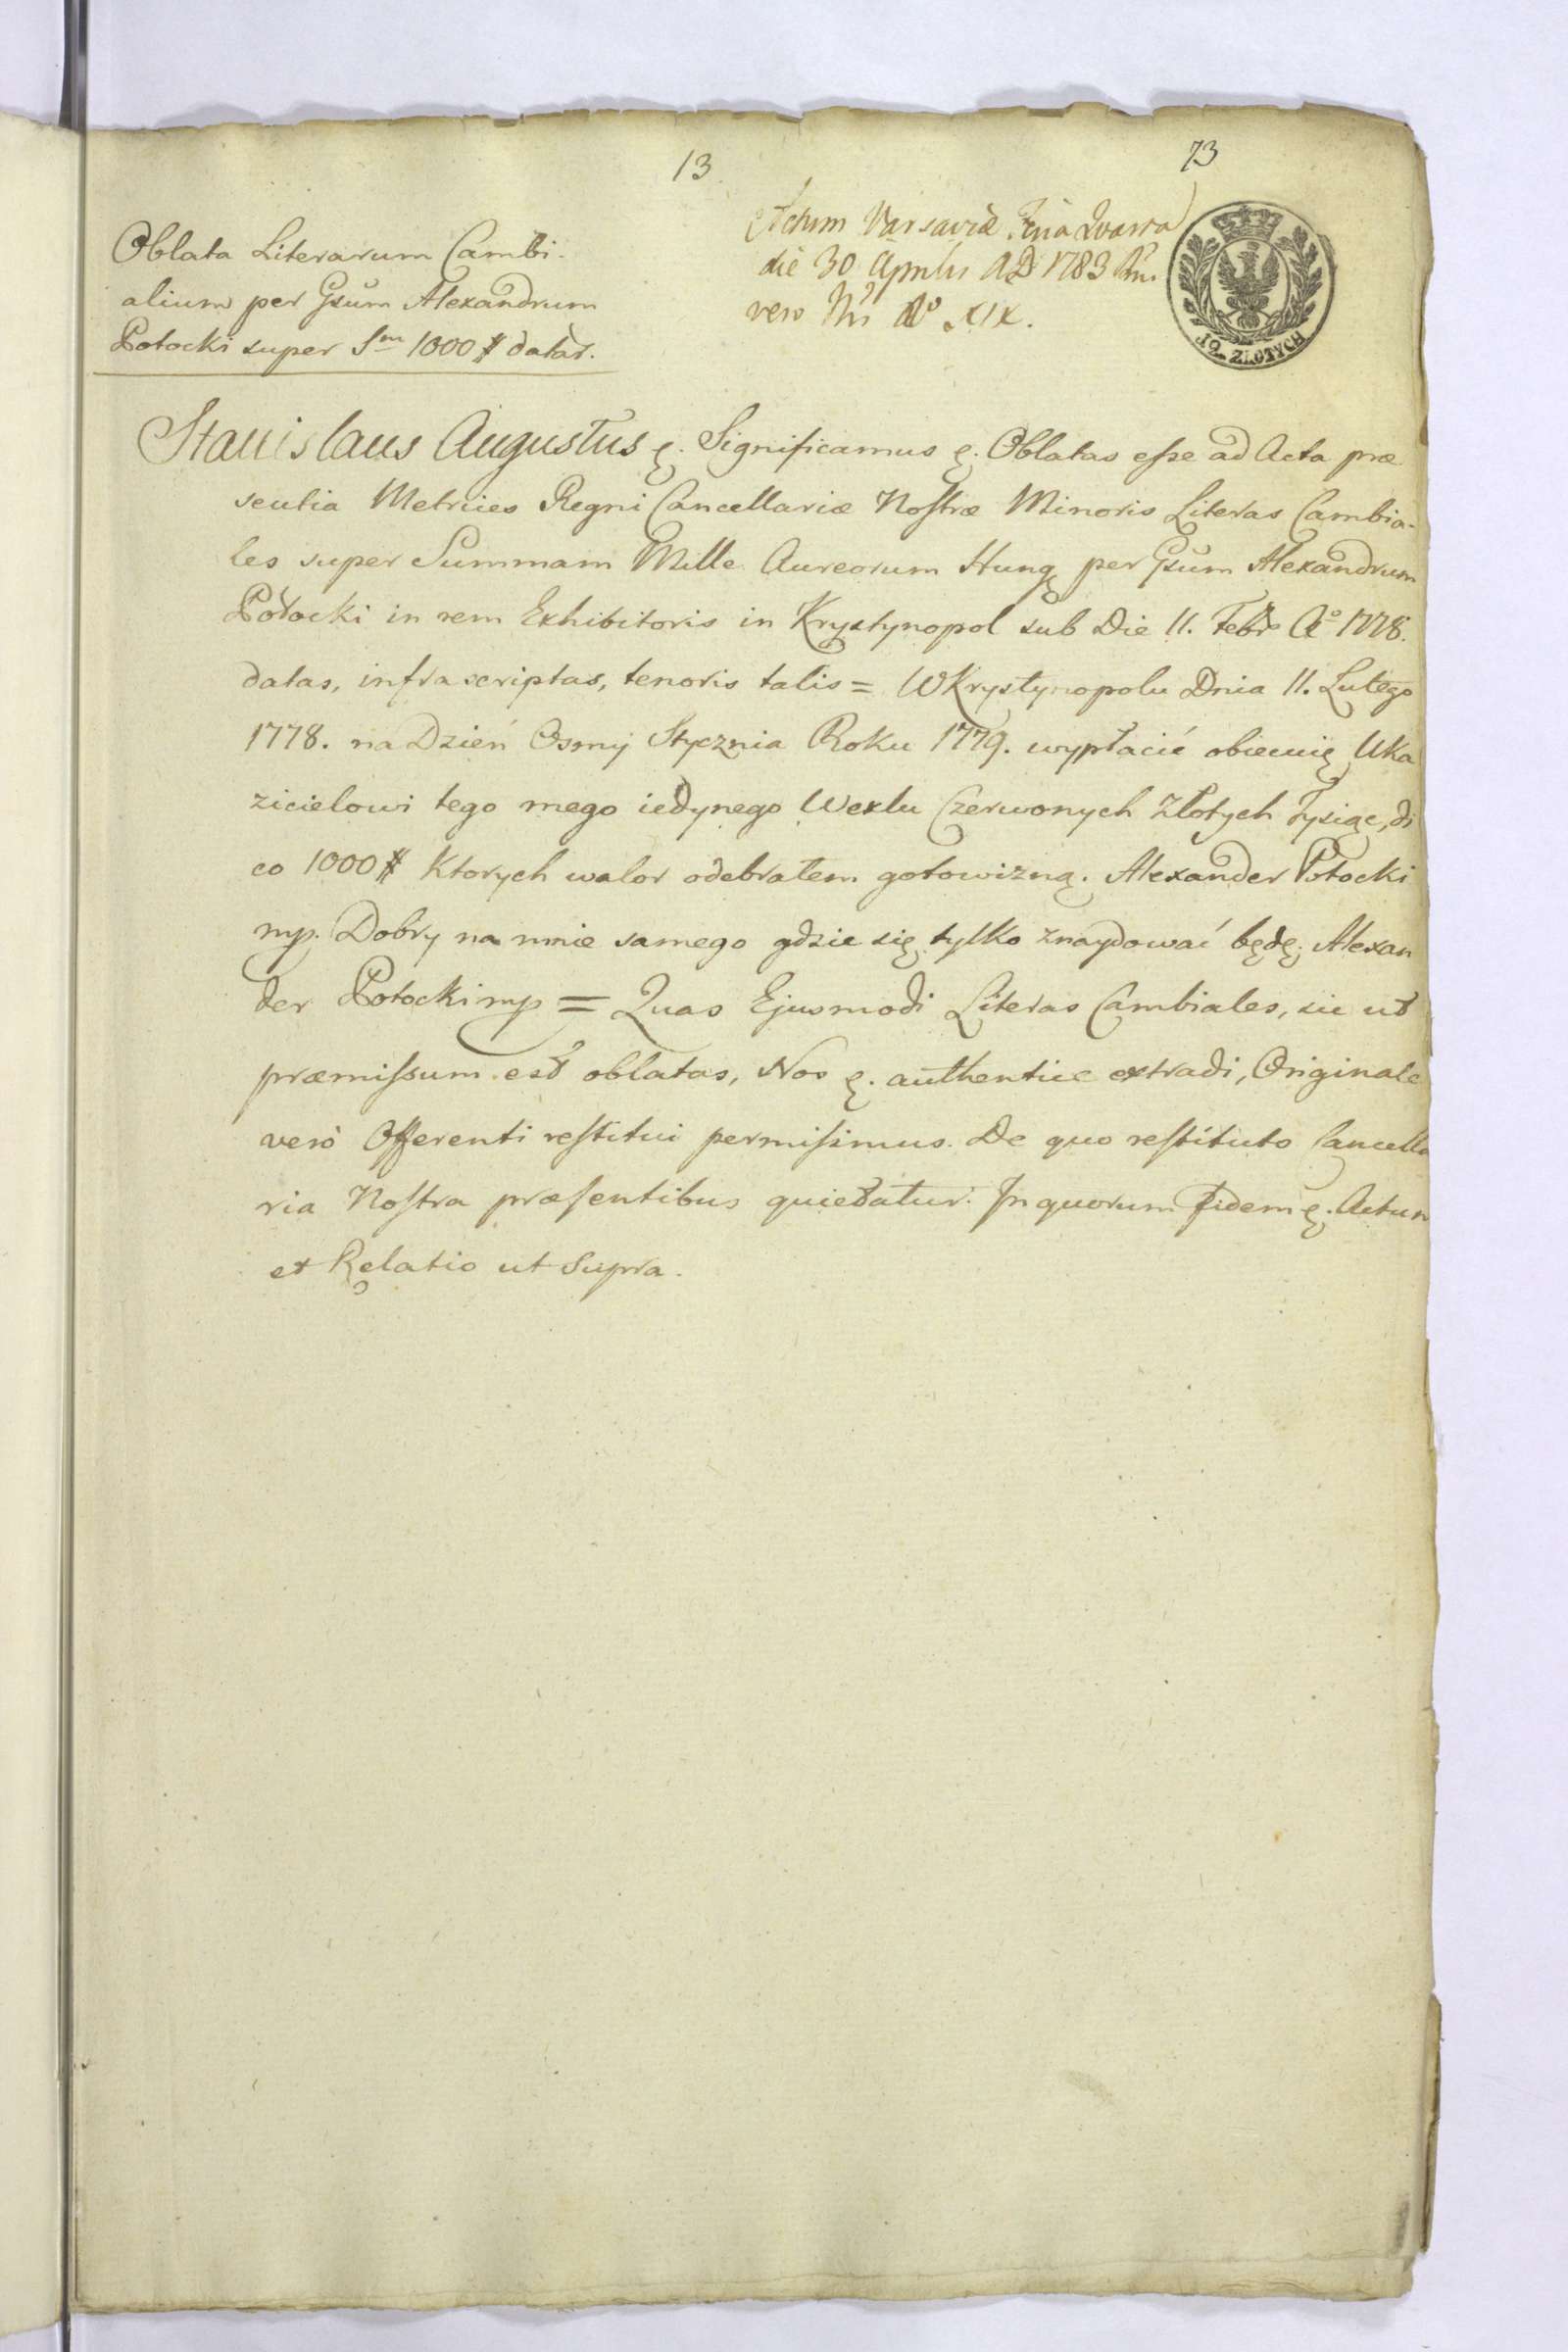 13
73
Oblata Literarum Cambi-
alium per Gsum Alexandrum
Potocki super Sm 1000 # datar.
Actum Varsaviæ Feria Quarta
die 30 Aprilis AD 1783 Rni
vero Nri Ao XIX.
12 ZŁOTYCH
Stanislaus Augustus &. Significamus &. Oblatas esse ad Acta præ
sentia Metrices Regni Cancellariæ Nostræ Minoris Literas Cambia-
les super Summam Mille Aureorum Hung per Gsum Alexandrum
Potocki in rem Exhibitoris in Krystynopol sub Die 11. Febr Ao 1778.
datas, infrascriptas, tenoris talis = W Krystynopolu Dnia 11. Lutego
1778. na Dzień Osmy Stycznia Roku 1779. wypłacić obiecuię Uka
zicielowi tego mego iedynego Wexlu Czerwonych Złotych Tysiąc, di
co 1000 # Ktorych walor odebrałem gotowizną. Alexander Potocki
mp. Dobry na mnie samego gdzie się tylko znaydować będę. Alexan
der Potocki mp = Quas Ejusmodi Literas Cambiales, sic ut
præmissum est oblatas, Nos &. authentice extradi, Originale
verò Offerenti restitui permisimus. De quo restituto Cancella
ria Nostra præsentibus quietatur. In quorum Fidem &. Actum
et Relatio ut Supra.